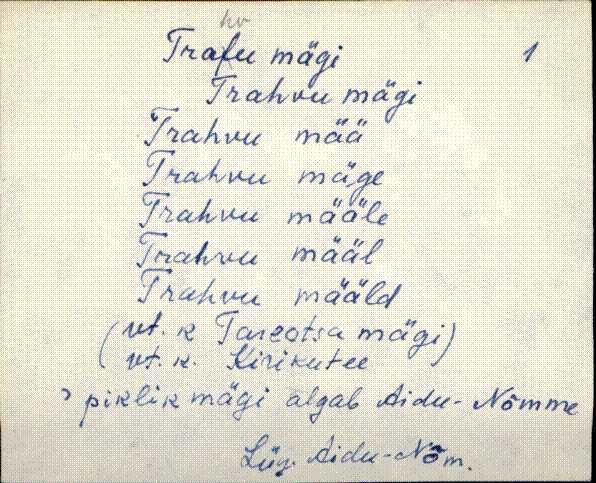 hv
Trafu mägi 1
Trahvu mägi
Trahvu mää
Trahvu mäge
Trahvu määle
Trahvu määl
Trahvu määld
(vt. k Tareotsa mägi)
(vt. k. Kirikutee
piklik mägi algab Aidu-Nõmme
Lüg. Aidu-Nõm.